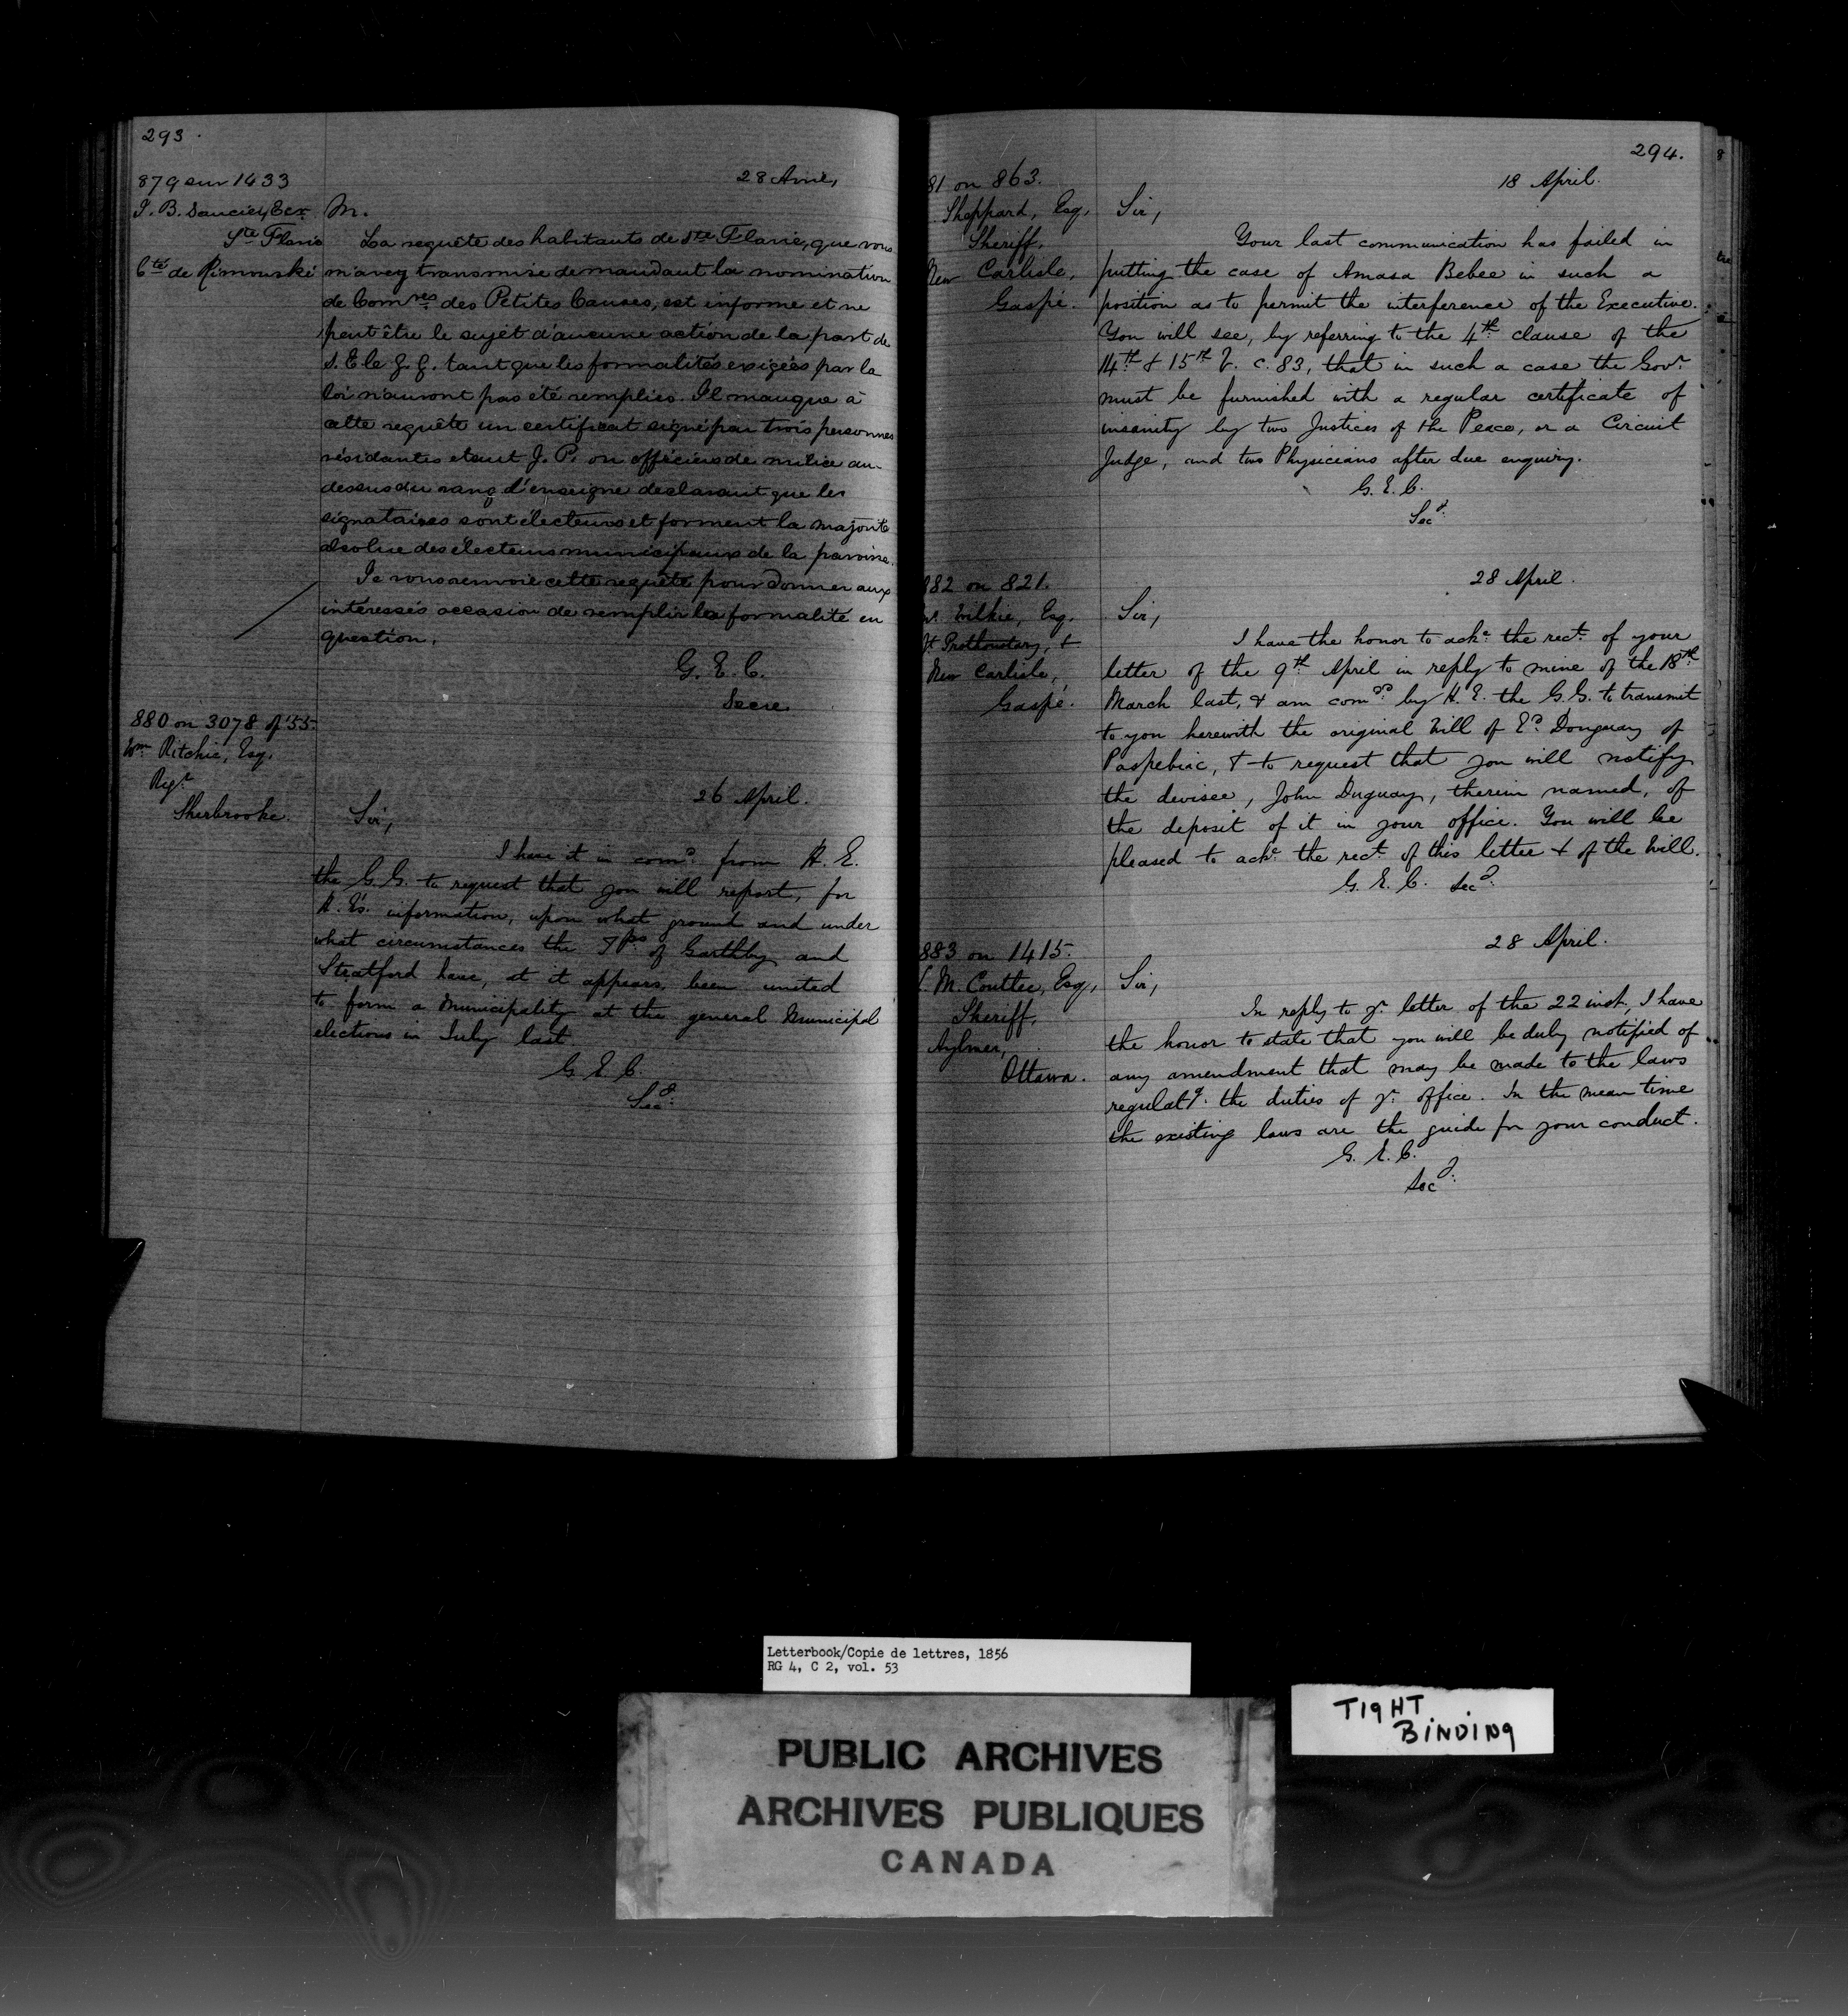 293.
879 sur 1433
J. B. Saucier, Ecr.
Ste Flavie
Cté de Rimouski
28 Avril,
M.
La requête des habitants de Ste Flavie, que vous
m'avez transmise demandant la nomination
de Comres des Petites Causes, est informe et ne
peut être le sujet d'aucune action de la part de
S. E le G. G. tant que les formalités exigées par la
loi n'auront pas été remplies. Il manque à
cette requête un certificat signé par trois personnes
résidantes etant J. P. ou officiers de milice au-
dessus du rang d'enseigne declarant que les
signataires sont électeurs et forment la majorité
absolue des électeurs municipaux de la paroisse.
Je vous renvoie cette requête pour donner aux
intéressés occasion de remplir les formalité en
question.
G. E. C.
Secre.
880 on 3078 of '55.
Wm Ritchie, Esq.
Regr
Sherbrooke.
26 April.
Sir,
I have it in comd. from H. E.
the G. G. to request that you will report, for
H. E's. information, upon what ground and under
what circumstances the Tps. of Garthby and
Stratford have, at it appears, been united
to form a Municipality at the general Municipal
elections in July last.
G. E. C.
Secy.
294.
81 on 863.
Sheppard, Esq,
Sheriff,
New Carlisle,
Gaspé.
18 April.
Sir,
Your last communication has failed in
putting the case of Amasa Bebee in such a
position as to permit the interference of the Executive.
You will see, by referring to the 4th clause of the
14th & 15th V. c. 83, that in such a case the Govr.
must be furnished with a regular certificate of
insanity by two Justices of the Peace, or a Circuit
Judge, and two Physicians after due enquiry.
G. E. C.
Secy.
882 on 821.
W. Wilkie, Esq.
Jt Prothonotary, &
New Carlisle,
Gaspé.
28 April.
Sir,
I have the honor to acke. the rect. of your
letter of the 9th April in reply to mine of the 18th.
March last, & am comd. by H. E. the G. G. to transmit
to you herewith the original Will of Ed. Donguay of
Paspebiac, & to request that you will notify
the devisee, John Duguay, therein named, of
the deposit of it in your office. You will be
pleased to acke. the rect. of this letter & of the Will.
G. E. C. Secy.
883 on 1415.
L. M. Coutlee, Esq,
Sheriff,
Aylmer,
Ottawa.
28 April.
Sir,
In reply to yr. letter of the 22 inst, I have
the honor to state that you will be duly notified of
any amendment that may be made to the laws
regulatg. the duties of yr. office. In the mean time
the existing laws are the guide for your conduct.
G. E. C.
Secy.
Letterbook/Copie de lettres, 1856
RG 4, C 2, vol. 53
TIGHT
BINDING
PUBLIC ARCHIVES
ARCHIVES PUBLIQUES
CANADA